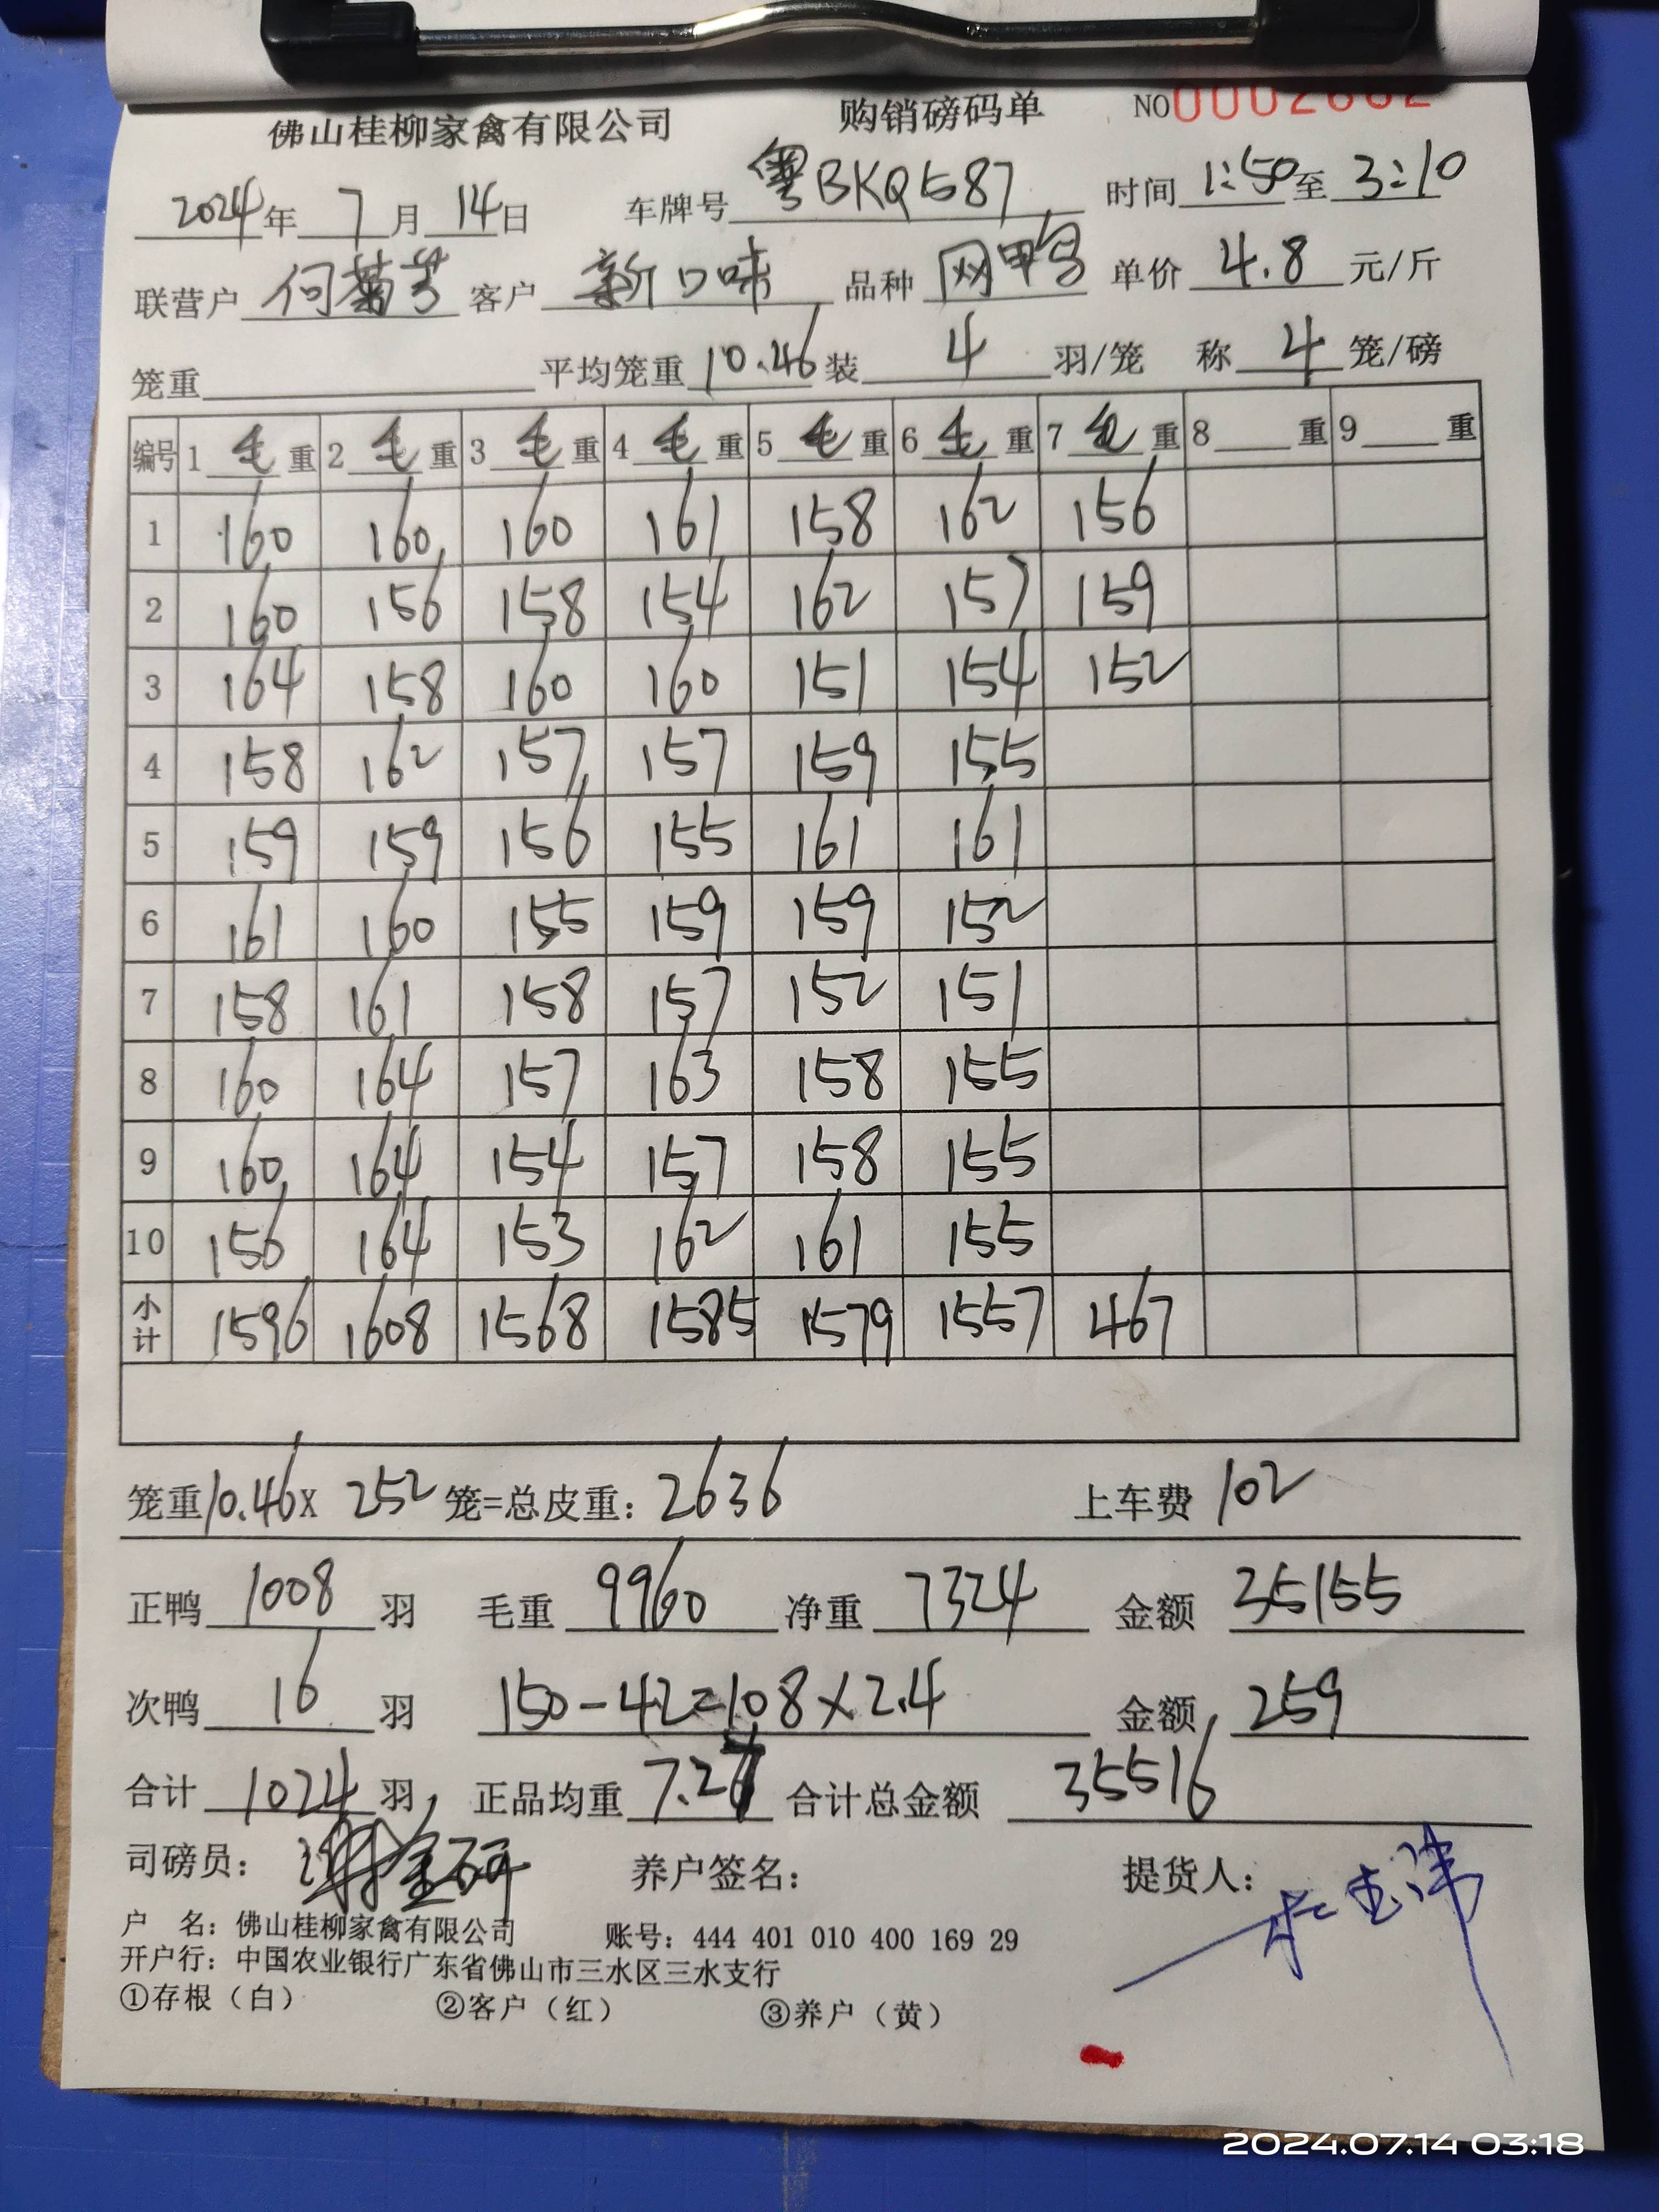 佛山桂柳家禽有限公司 购销磅码单 NO 0002662
2024年 7月 14日 车牌号 粤BKQ587 时间 1:50 至 3:10
联营户 何菊芳 客户 新口味 品种 网甲鸟 单价 4.8 元/斤
笼重 平均笼重 10.46 装 4 羽/笼 称 4 笼/磅
编号 1 毛 重 2 毛 重 3 毛 重 4 毛 重 5 毛 重 6 毛 重 7 毛 重 8 重 9 重
1 160 160 160 161 158 162 156
2 160 156 158 154 162 157 159
3 164 158 160 160 151 154 152
4 158 162 157 157 159 155
5 159 159 156 155 161 161
6 161 160 155 159 159 152
7 158 161 158 157 152 151
8 160 164 157 163 158 155
9 160 164 154 157 158 155
10 156 164 153 162 161 155
小计 1596 1608 1568 1585 1579 1557 467
笼重 10.46 x 252 笼=总皮重: 2636 上车费 102
正鸭 1008 羽 毛重 9960 净重 7324 金额 35155
次鸭 16 羽 150-42=108×2.4 金额 259
合计 1024 羽 正品均重 7.27 合计总金额 35516
司磅员: 养户签名: 提货人:
户 名: 佛山桂柳家禽有限公司 账号: 444 401 010 400 169 29
开户行: 中国农业银行广东省佛山市三水区三水支行
①存根（白） ②客户（红） ③养户（黄）
2024.07.14 03:18